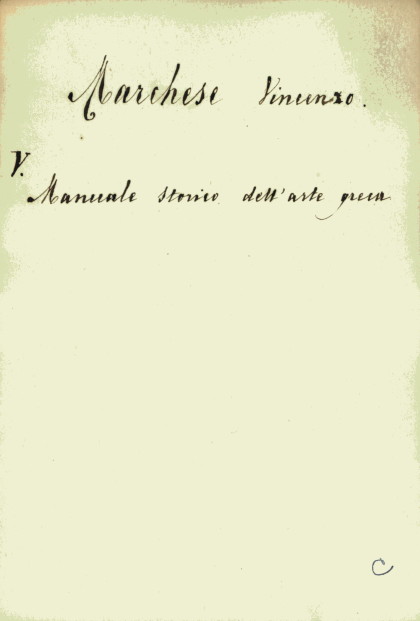 Marchese Vincenzo.
V.
Manuale storico dell'arte greca
C